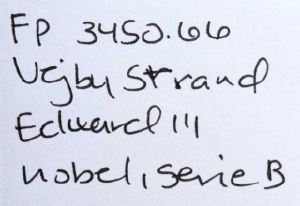 FP 3450.66
Vejby Strand
Edward III
Nobel, serie B